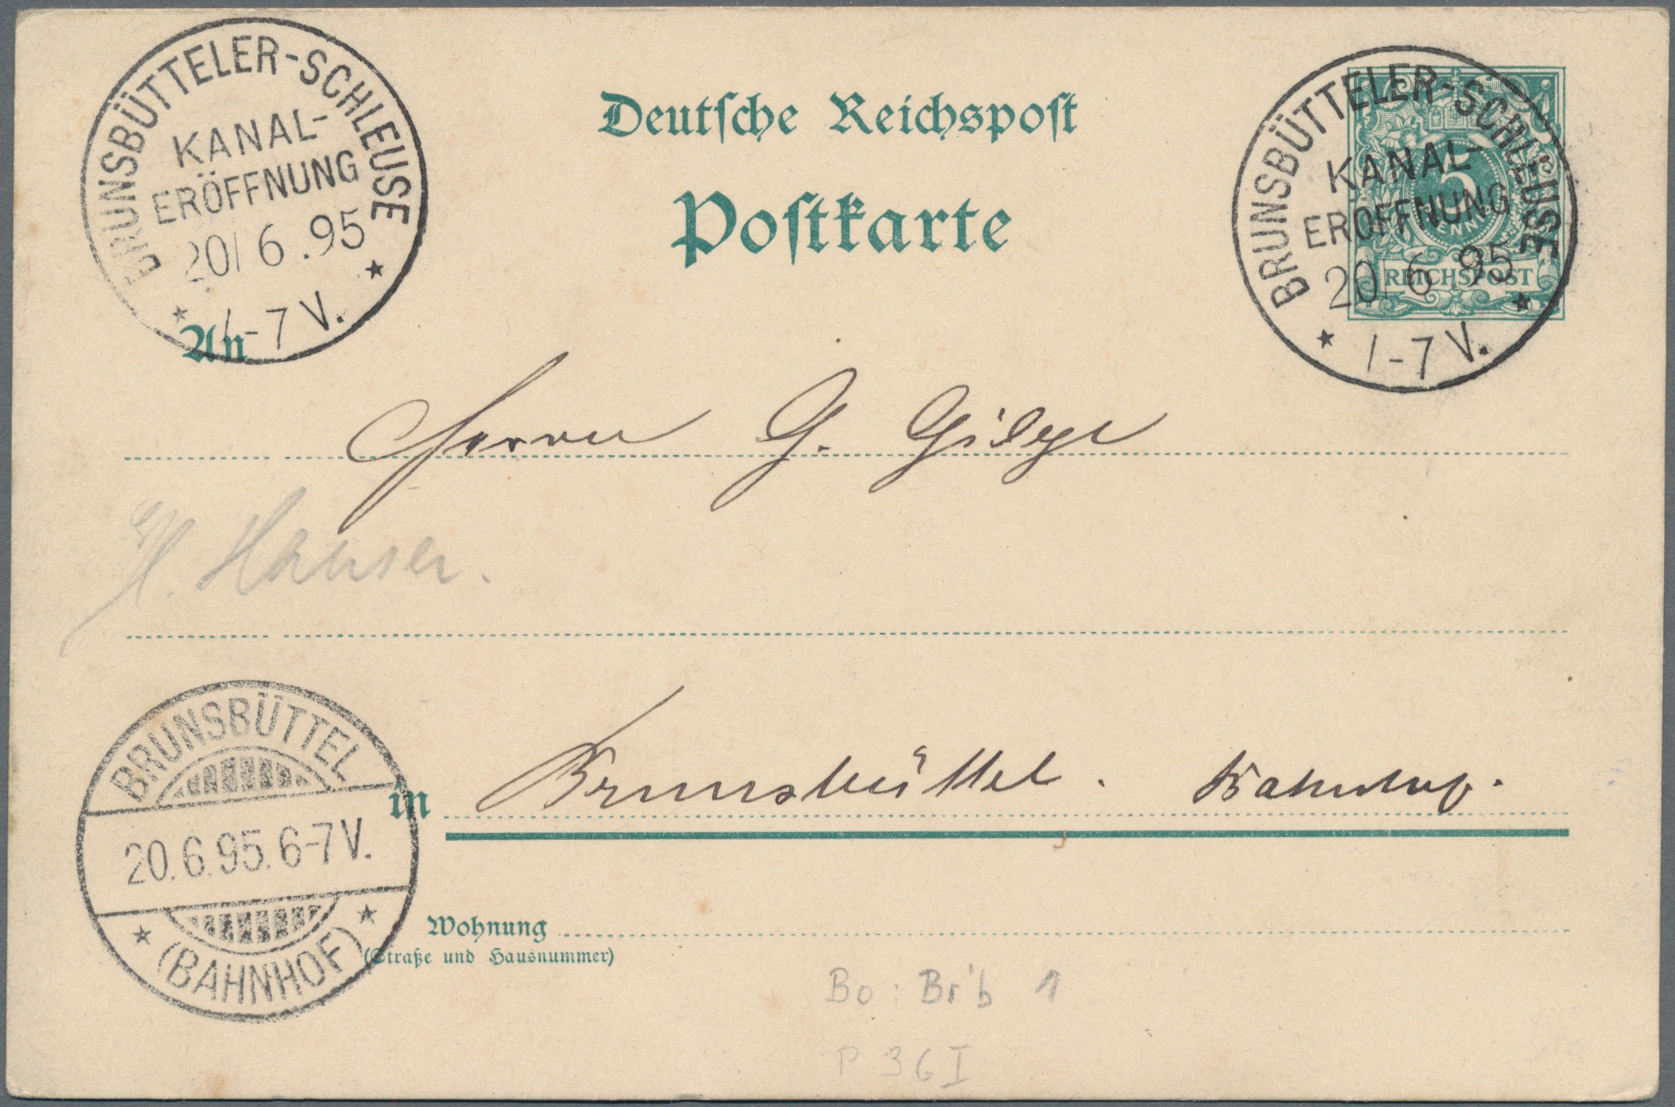 BRUNSBÜTTELER-SCHLEUSE
KANAL-
ERÖFFNUNG
20/6.95
* 1-7 V. *
Deutsche Reichspost
Postkarte
5
REICHSPOST
BRUNSBÜTTELER-SCHLEUSE
KANAL-
ERÖFFNUNG
20/6 95
* 1-7 V. *
An
Herrn G. Gilge
H. Hauser.
in Brunsbüttel. Bahnhof.
BRUNSBÜTTEL
20.6.95.6-7V.
* (BAHNHOF) *
Wohnung
(Straße und Hausnummer)
Bo: Br'b 1
P 36 I